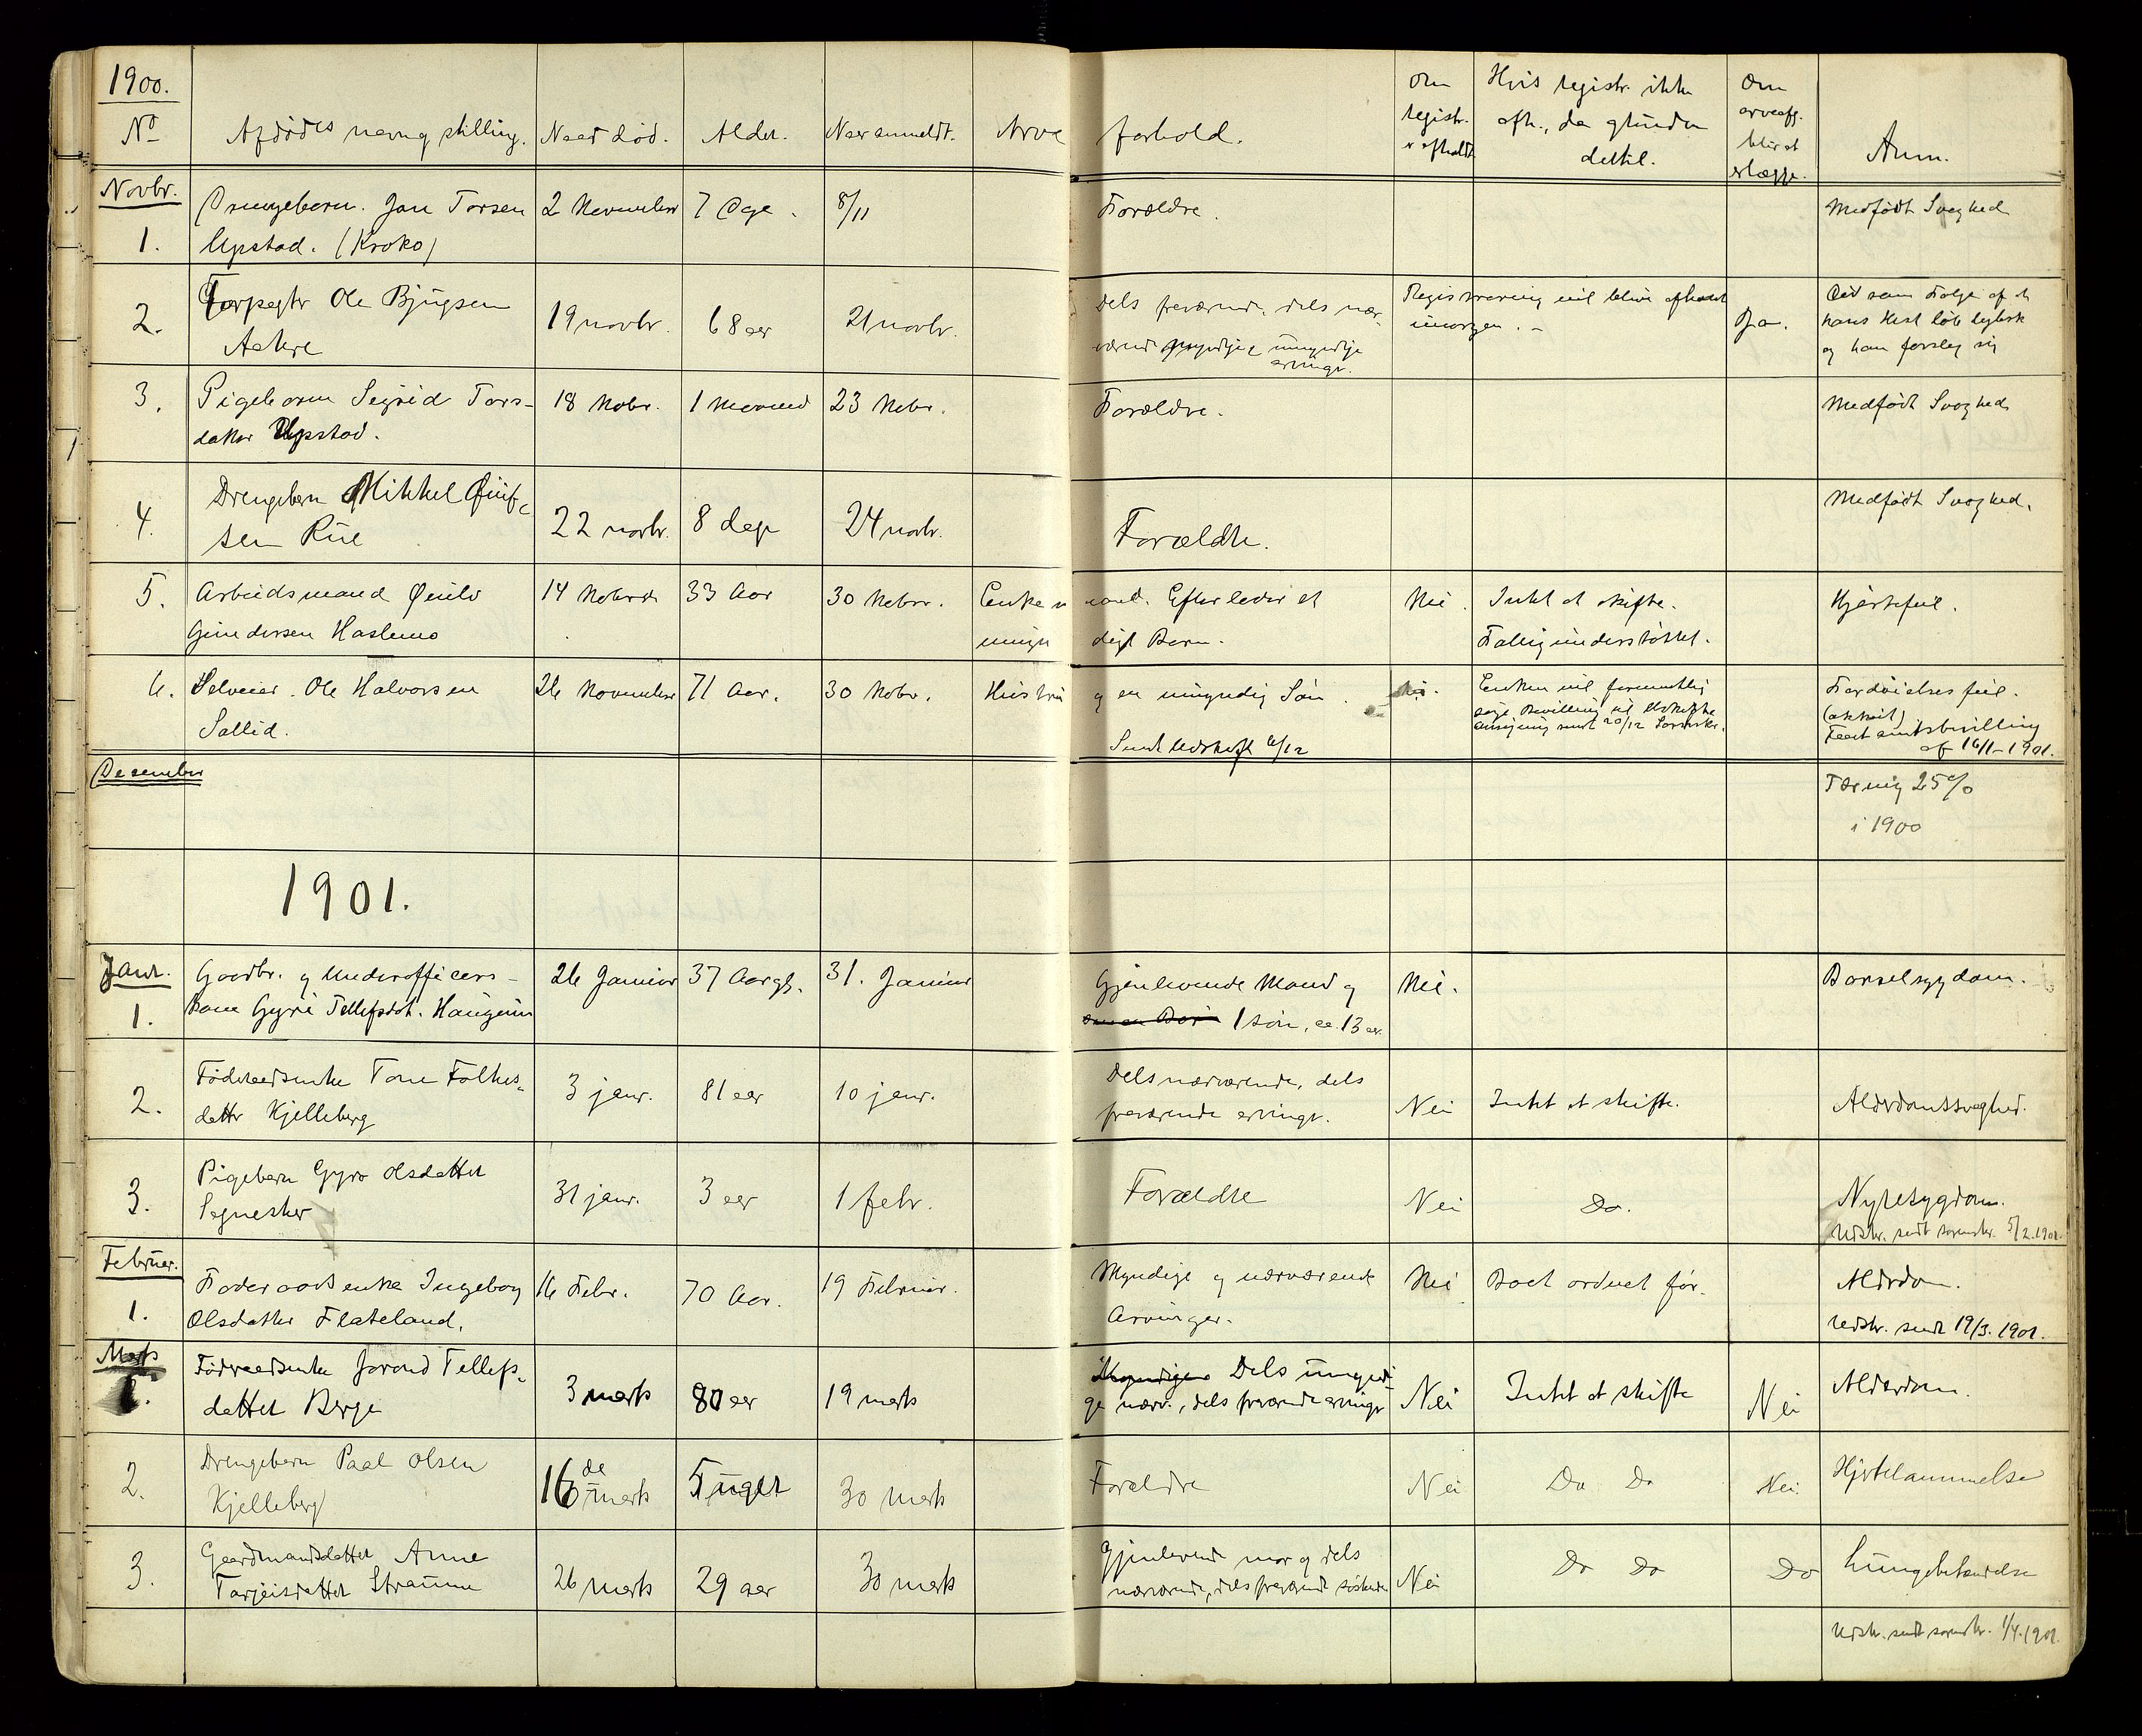 1900.
No Afdødes navn og stilling. Naar død. Alder. Naar anmeldt. Arve forhold. Om registr. er afholdt Hvis registr. ikke afh., da grunden dertil. Om arveafg. blir at erlægge. Anm.
Novbr.
1. Drengebarn. Jon Torsen 2 November 7 Dge. 8/11 Forældre. Medfødt Svaghed
Upstad. (Kroko)
2. Forpagtr Ole Bjugsen 19 novbr. 68 aar 21 novbr. Dels fraværende, dels nær- Registrering vil blive afholdt Ja. Død som Følge af at
Aakre værende myndige umyndige arvinger. imorgen. - hans Hest løb løbsk
og han forslog sig
3. Pigebarn Sigrid Tors- 18 Nobr. 1 Maaned 23 Nobr. Forældre. Medfødt Svaghed
datter Upstad.
4. Drengebarn Mikkel Guif- 22 novbr. 8 dage 24 novbr. Forældre. Medfødt Svaghed.
sen Rue
5. Arbeidsmand 14 Nobr. 33 Aar 30 Nobr. Enkemand. Efterlader et Nei. Intet at skifte. Hjertefeil.
Gundersen Haslemo umyndigt Barn. Fattigunderstøttet.
6. Selveier. Ole Halvorsen 26 November 71 Aar. 30 Nobr. Hustru og en umyndig Søn. Nei. Enken vil formentlig Fordøielsesfeil.
Sallid. Sendt Udskrift 6/12 søge Bevilling til Uskiftet (akkut)
Ansøgning sendt 20/12 Sorenskr. Faaet amtsbevilling
af 16/1-1901.
December Tæring 25%
i 1900
1901.
Janr.
1. Gaardbr. og Underofficers- 26 Januar 37 Aar gl. 31. Januar Gjenlevende Mand og Nei. Barselsygdom.
kone Gyri Tellefsdot. Haugum 1 søn, ca. 13 aar.
2. Føderaadsenke Tone Folkes- 3 janr. 81 aar 10 janr. Dels nærværende, dels Nei Intet at skifte. Alderdomssvaghed.
datter Kjelleberg fraværende arvinger.
3. Pigebarn Gyro Olsdatter 31 janr. 3 aar 1 febr. Forældre Nei Do. Nyresygdom.
Udskr. sendt sorenskr. 5/2.1901.
Februar.
1. Føderaadsenke Ingeborg 16 Febr. 70 Aar. 19 Februar. Myndige og nærværende Nei Boet ordnet før. Alderdom.
Olsdatter Flateland. Arvinger. Udskr. sendt 19/3.1901.
Marts
1. Føderaadsenke Joraand Tellefs- 3 marts 80 aar 19 marts Myndige Dels umyndi- Nei Intet at skifte Nei Alderdom.
datter Berge ge nærv., dels fraværende arvinger
2. Drengebarn Paal Olsen 16de marts 5 uger 30 marts Forældre Nei Do Do Nei. Hjertelammelse
Kjelleberg
3. Gaardmandsdatter Anne 26 marts 29 aar 30 marts Gjenlevende mor og dels Nei Do Do Do Lungebetændelse
Tarjeisdatter Straume nærværende, dels fraværende søskende
Udskr. sendt sorenskr. 1/4.1901.